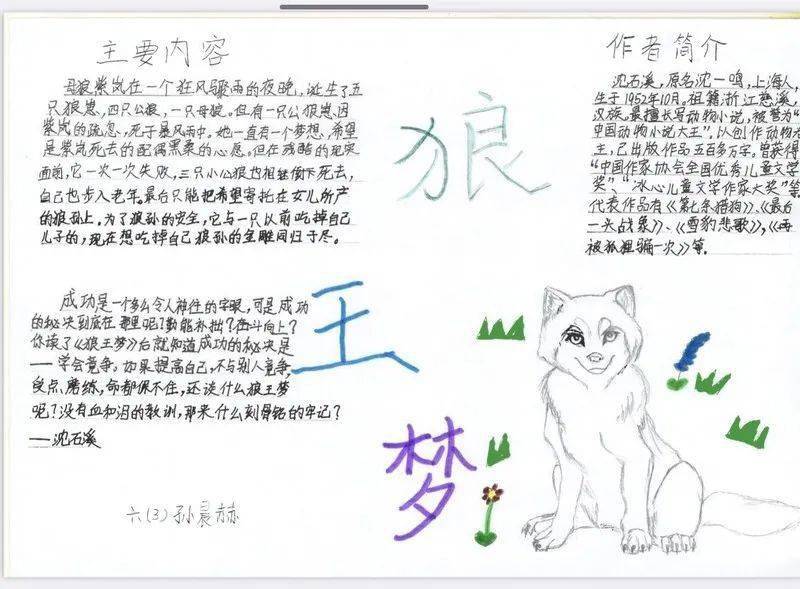 主要内容
母狼紫岚在一个狂风骤雨的夜晚,诞生了五
只狼崽,四只公狼,一只母狼。但有一只公狼崽因
紫岚的疏忽,死于暴风雨中。她一直有一个梦想,希望
是紫岚死去的配偶黑桑的心愿。但在残酷的现实
面前,它一次一次失败,三只小公狼也相继倒下死去,
自己也步入老年。最后只能把希望寄托在女儿所产
的狼孙上。为了狼孙的安全,它与一只以前吃掉自己
儿子的,现在想吃掉自己狼孙的金雕同归于尽。
狼
王
梦
作者简介
沈石溪,原名沈一鸣,上海人,
生于1952年10月。祖籍浙江慈溪,
汉族。最擅长写动物小说,被誉为“
中国动物小说大王”,以创作动物为
主,已出版作品五百多万字。曾获得
“中国作家协会全国优秀儿童文学
奖”、“冰心儿童文学作家大奖”等
代表作品有《第七条猎狗》、《最后
一头战象》、《雪豹悲歌》,《再
被狐狸骗一次》等.
成功是一个多么令人神往的字眼,可是成功
的秘决到底在哪里呢?勤能补拙?奋斗向上?
你读了《狼王梦》后就知道成功的秘决是
——学会竞争。如果提高自己,不与别人竞争,
受点磨练,命都保不住,还谈什么狼王梦
呢?没有血和泪的教训,那来什么刻骨铭的牢记?
——沈石溪
六(3)孙晨赫